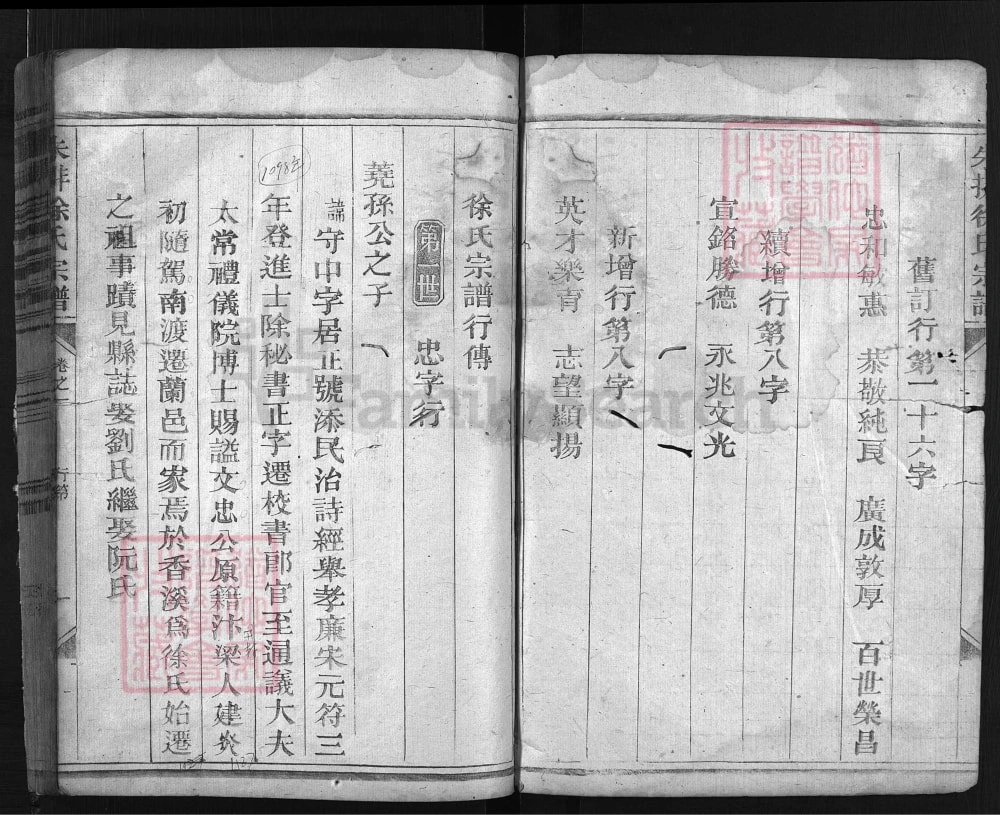 舊訂行第二十六字
忠和敏惠 恭敬純良 廣成敦厚 百世榮昌
續增行第八字
宣銘勝德 永兆文光
新增行第八字
英才樂育 志望顯揚
徐氏宗譜行傳
第一世 忠字行
蕘孫公之子
諱守中字居正號添民治詩經舉孝廉宋元符三
1098年
年登進士除秘書正字遷校書郎官至通議大夫
太常禮儀院博士賜謚文忠公原籍汴梁人建炎
初隨駕南渡遷蘭邑而家焉於香溪爲徐氏始遷
1127
之祖事蹟見縣誌娶劉氏繼娶阮氏
徐氏宗譜
卷之一
行第
FamilySearch